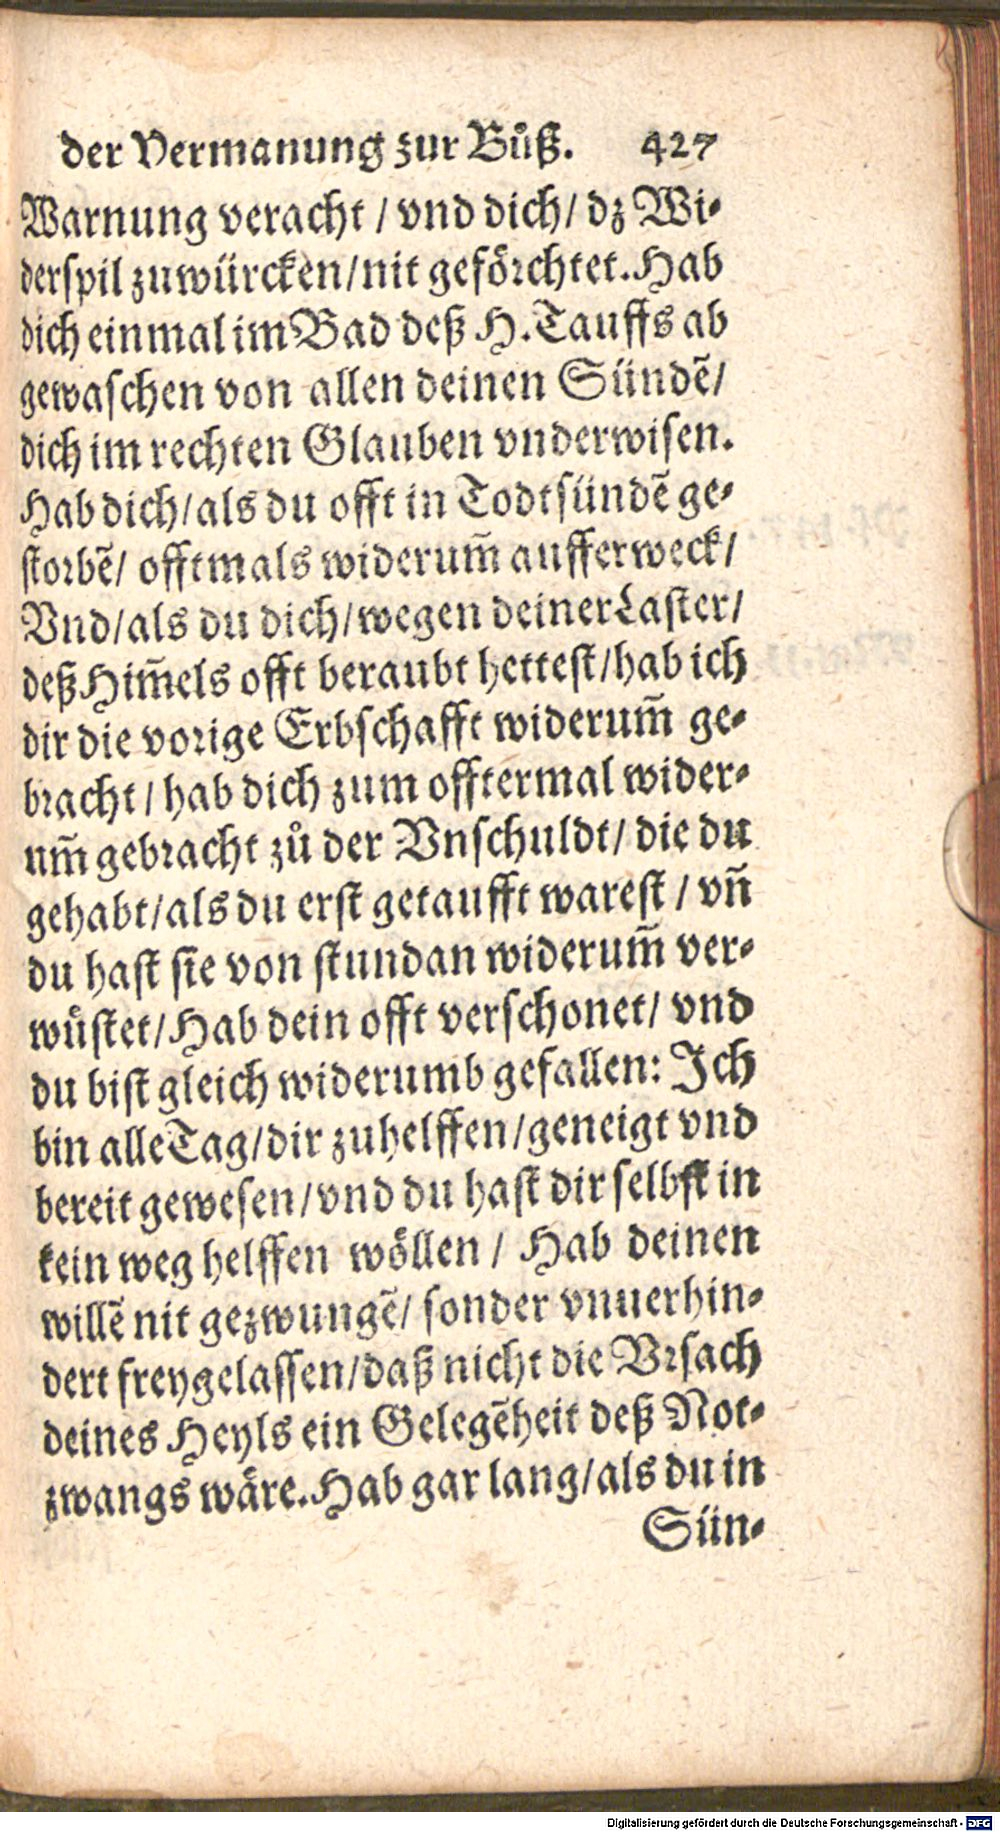 der Vermanung zur Bůß. 427
Warnung veracht / vnd dich / dz Wi-
derspil zuwürcken / nit geförchtet. Hab
dich einmal im Bad deß H. Tauffs ab
gewaschen von allen deinen Sündẽ /
dich im rechten Glauben vnderwisen.
Hab dich / als du offt in Todtsündẽ ge-
storbẽ / offtmals widerum̃ aufferweck /
Vnd / als du dich / wegen deiner Laster /
deß Him̃els offt beraubt hettest / hab ich
dir die vorige Erbschafft widerum̃ ge-
bracht / hab dich zum offtermal wider-
um̃ gebracht zů der Vnschuldt / die du
gehabt / als du erst getaufft warest / vñ
du hast sie von stundan widerum̃ ver-
wůstet / Hab dein offt verschonet / vnd
du bist gleich widerumb gefallen: Ich
bin alle Tag / dir zuhelffen / geneigt vnd
bereit gewesen / vnd du hast dir selbst in
kein weg helffen wöllen / Hab deinen
willẽ nit gezwungẽ / sonder vnuerhin-
dert freygelassen / daß nicht die Vrsach
deines Heyls ein Gelegẽheit deß Not-
zwangs wäre. Hab gar lang / als du in
Sün-
Digitalisierung gefördert durch die Deutsche Forschungsgemeinschaft - DFG